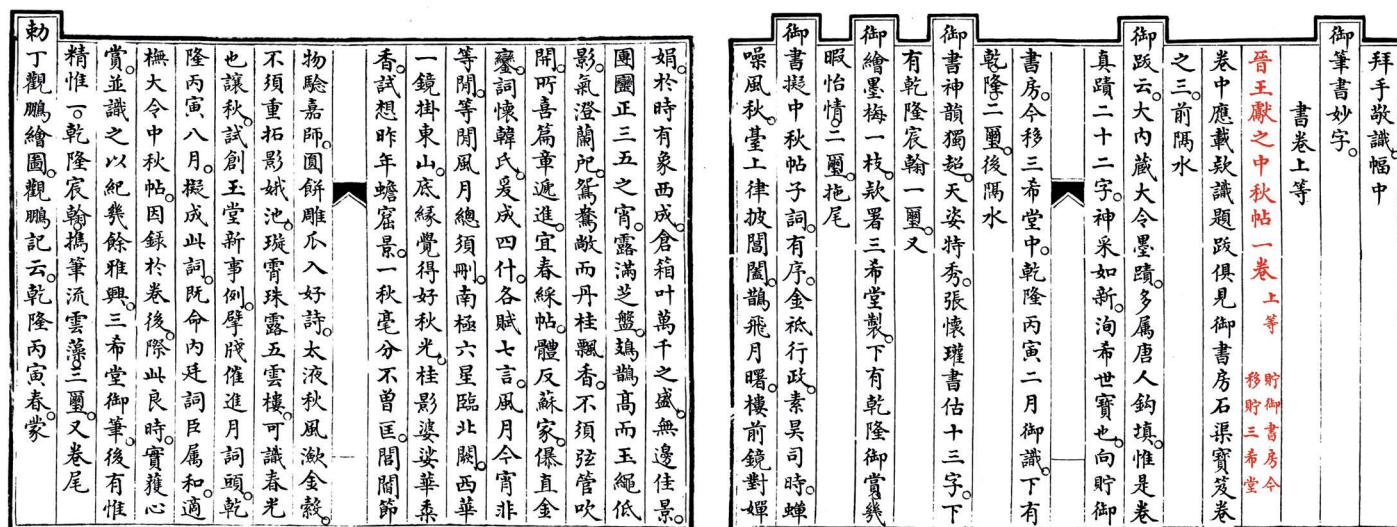 拜手敬識。幅中
御
筆書妙字。
書卷上等
晉王獻之中秋帖一卷 上等 貯御書房今
移貯三希堂
卷中應載款識題跋俱見御書房石渠寶笈卷
之三。前隔水
御
跋云。大内藏大令墨蹟。多属唐人鈎填。惟是卷
真蹟二十二字。神采如新。洵希世寶也。向貯御
書房。今移三希堂中。乾隆丙寅二月御識。下有
乾隆二璽。後隔水
御
書神韻獨超。天姿特秀。張懷瓘書估十三字。下
有乾隆宸翰一璽。又
御
繪墨梅一枝。款署三希堂製。下有乾隆御賞。幾
暇怡情。二璽。拖尾
御
書擬中秋帖子詞。有序。金祗行政。素昊司時。蟬
噪風秋。臺上律披閶闔。鵲飛月曙。樓前鏡對嬋
娟。於時有象西成。倉箱叶萬千之盛。無邊佳景。
團圞正三五之宵。露滿芝盤。鳷鵲高而玉繩低
影。氣澄蘭戺。鴛鴦敞而丹桂飄香。不須弦管吹
開。所喜篇章遞進。宜春綵帖。體反蘇家。儤直金
鑾。詞懷韓氏。爰成四什。各賦七言。風月今宵非
等閒。等閒風月總須刪。南極六星臨北闕。西華
一鏡掛東山。底緣覺得好秋光。桂影婆娑華桑
香。試想昨年蟾窟景。一秋毫分不曾匡。閏閒節
物騐嘉師。圓餅雕瓜入好詩。太液秋風漱金縠。
不須重拓影娥池。璇霄珠露五雲樓。可識春光
也讓秋。試創玉堂新事例。擘牋催進月詞頭。乾
隆丙寅八月。擬成此詞。既命内廷詞臣属和。適
橅大令中秋帖。因録於卷後。際此良時。實獲心
賞。並識之以紀幾餘雅興。三希堂御筆。後有惟
精惟一。乾隆宸翰。擕筆流雲藻。三璽。又卷尾
勅
丁觀鵬繪圖。觀鵬記云。乾隆丙寅春。蒙